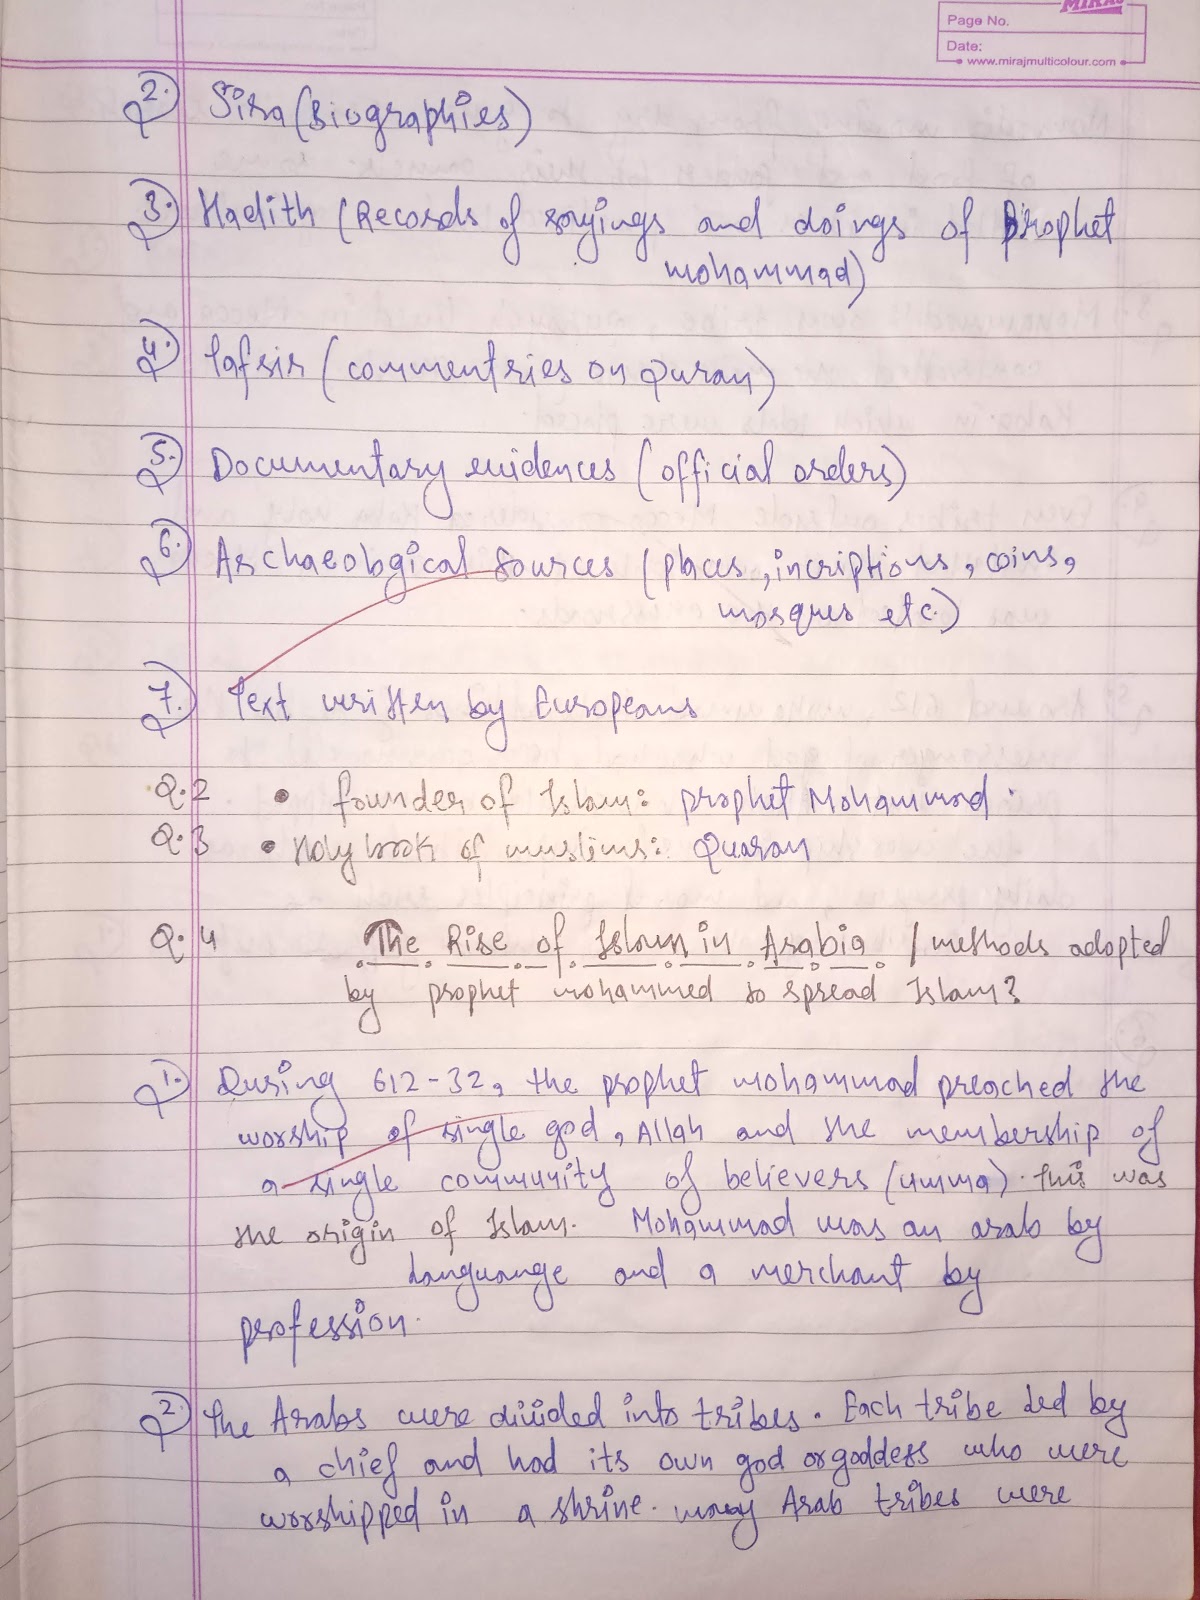 MIRAJ
Page No.
Date:
www.mirajmulticolour.com
2. Sira (Biographies)
3. Hadith (Records of sayings and doings of Prophet
mohammad)
4. Tafsir (commentries on Quran)
5. Documentary evidences (official orders)
6. Archaeological Sources (places, incriptions, coins,
mosques etc.)
7. Text written by Europeans
Q.2 • founder of Islam: prophet Mohammad.
Q.3 • Holy book of muslims: Quaran
Q.4 The Rise of Islam in Arabia / methods adopted
by prophet mohammed to spread Islam?
1. During 612-32, the prophet mohammad preached the
worship of single god, Allah and the membership of
a single community of believers (umma). this was
the origin of Islam. Mohammad was an arab by
languange and a merchant by
profession.
2. The Arabs were divided into tribes. Each tribe led by
a chief and had its own god or goddess who were
worshipped in a shrine. many Arab tribes were